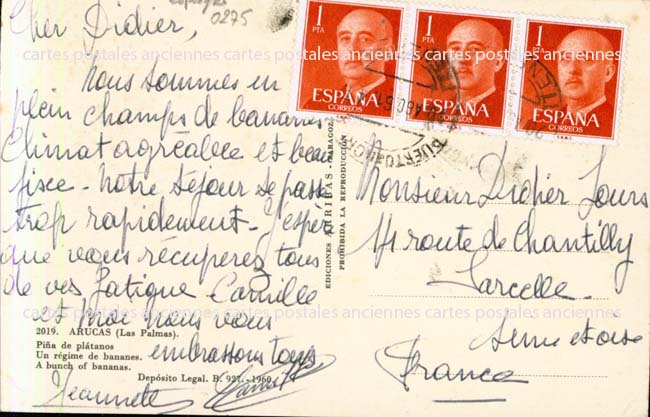 Espagne
0275
Cher Didier,
Nous sommes en
plein champs de bananes
Climat agréable et beau
fixe - Notre séjour se passe
trop rapidement - J'espère
que vous récuperez tous
de vos fatigue Camille
et moi nous vous
embrassons tous
Jeannette
2019. ARUCAS (Las Palmas).
Piña de plátanos
Un régime de bananes.
A bunch of bananas.
Depósito Legal. B. 921 - 1960
EDICIONES ARRIBAS - ZARAGOZA
PROHIBIDA LA REPRODUCCIÓN
1 PTA
ESPAÑA
CORREOS
1 PTA
ESPAÑA
CORREOS
1 PTA
ESPAÑA
CORREOS
Monsieur Didier Jours
14 route de Chantilly
Sarcelle
Seine et oise
France
cartes postales anciennes cartes postales anciennes cartes postales anciennes
cartes postales anciennes cartes postales anciennes cartes postales anciennes